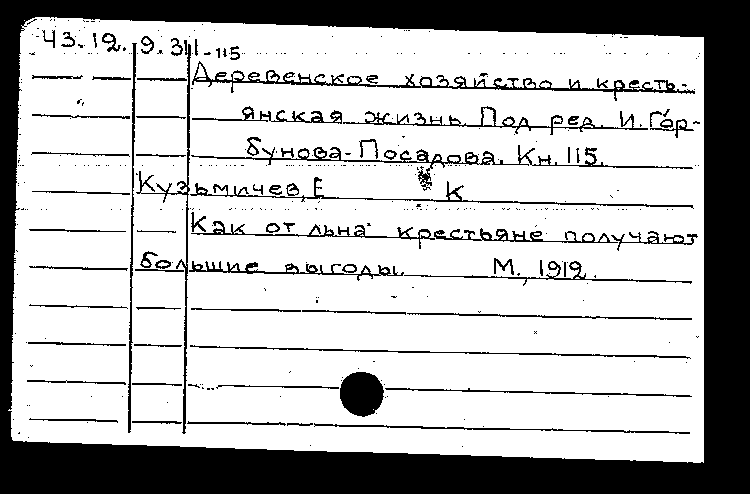 43.12.9.311-115
Деревенское хозяйство и кресть-
янская жизнь. Под ред. И. Гор-
бунова-Посадова. Кн. 115.
Кузьмичев, Е К
Как от льна крестьяне получают
большие выгоды. М., 1912.